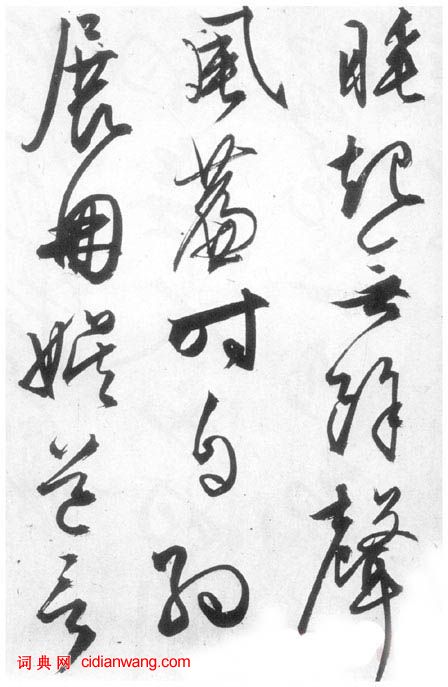 睡起無餘聲
風簾时自
展冊娱道言
词典网 cidianwang.com